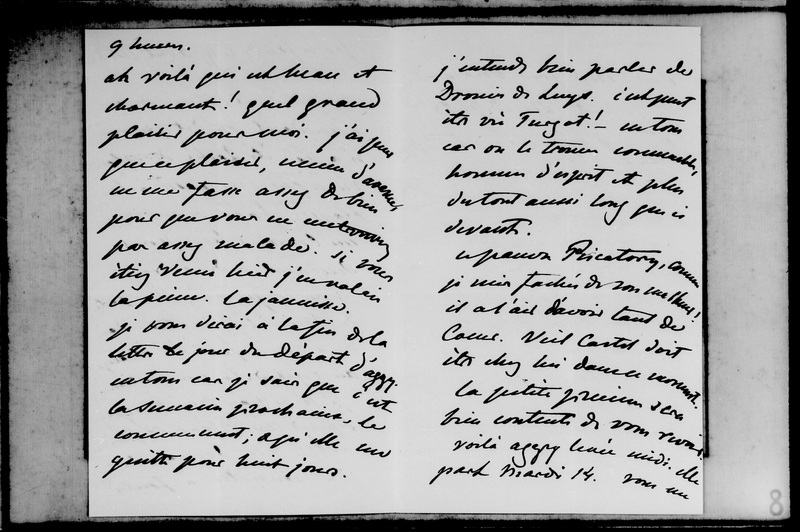 9 heures.
ah voilà qui est beau et
charmant! quel grand
plaisir pour moi. j'ai peur
que ce plaisir, même d'avance
ne me fasse assez de bien
pour que vous ne me trouviez
pas assez malade. si vous
étiez venu hier j'en valais
la peine. la jaunisse.
je vous dirai à la fin de la
lettre le jour du départ d'aggy.
en tous cas je sais que c'est
la semaine prochaine, le
commencement; & qu'elle me
quitte pour huit jours.
j'entends bien parler de
Drouin de Lhuys. c'est peut
être vrai Turgot! – en tous
cas on le trouve convenable,
homme d'esprit et plus
du tout aussi long que ci
devant.
ce pauvre Piscatory, comme
je suis fâchée de son malheur!
il a l'air d'avoir tant de
cœur. Viel Castel doit
être chez lui dans ce moment.
la petite princesse sera
bien contente de vous revoir.
voilà aggy levée midi. elle
part mardi 14. vous me
8